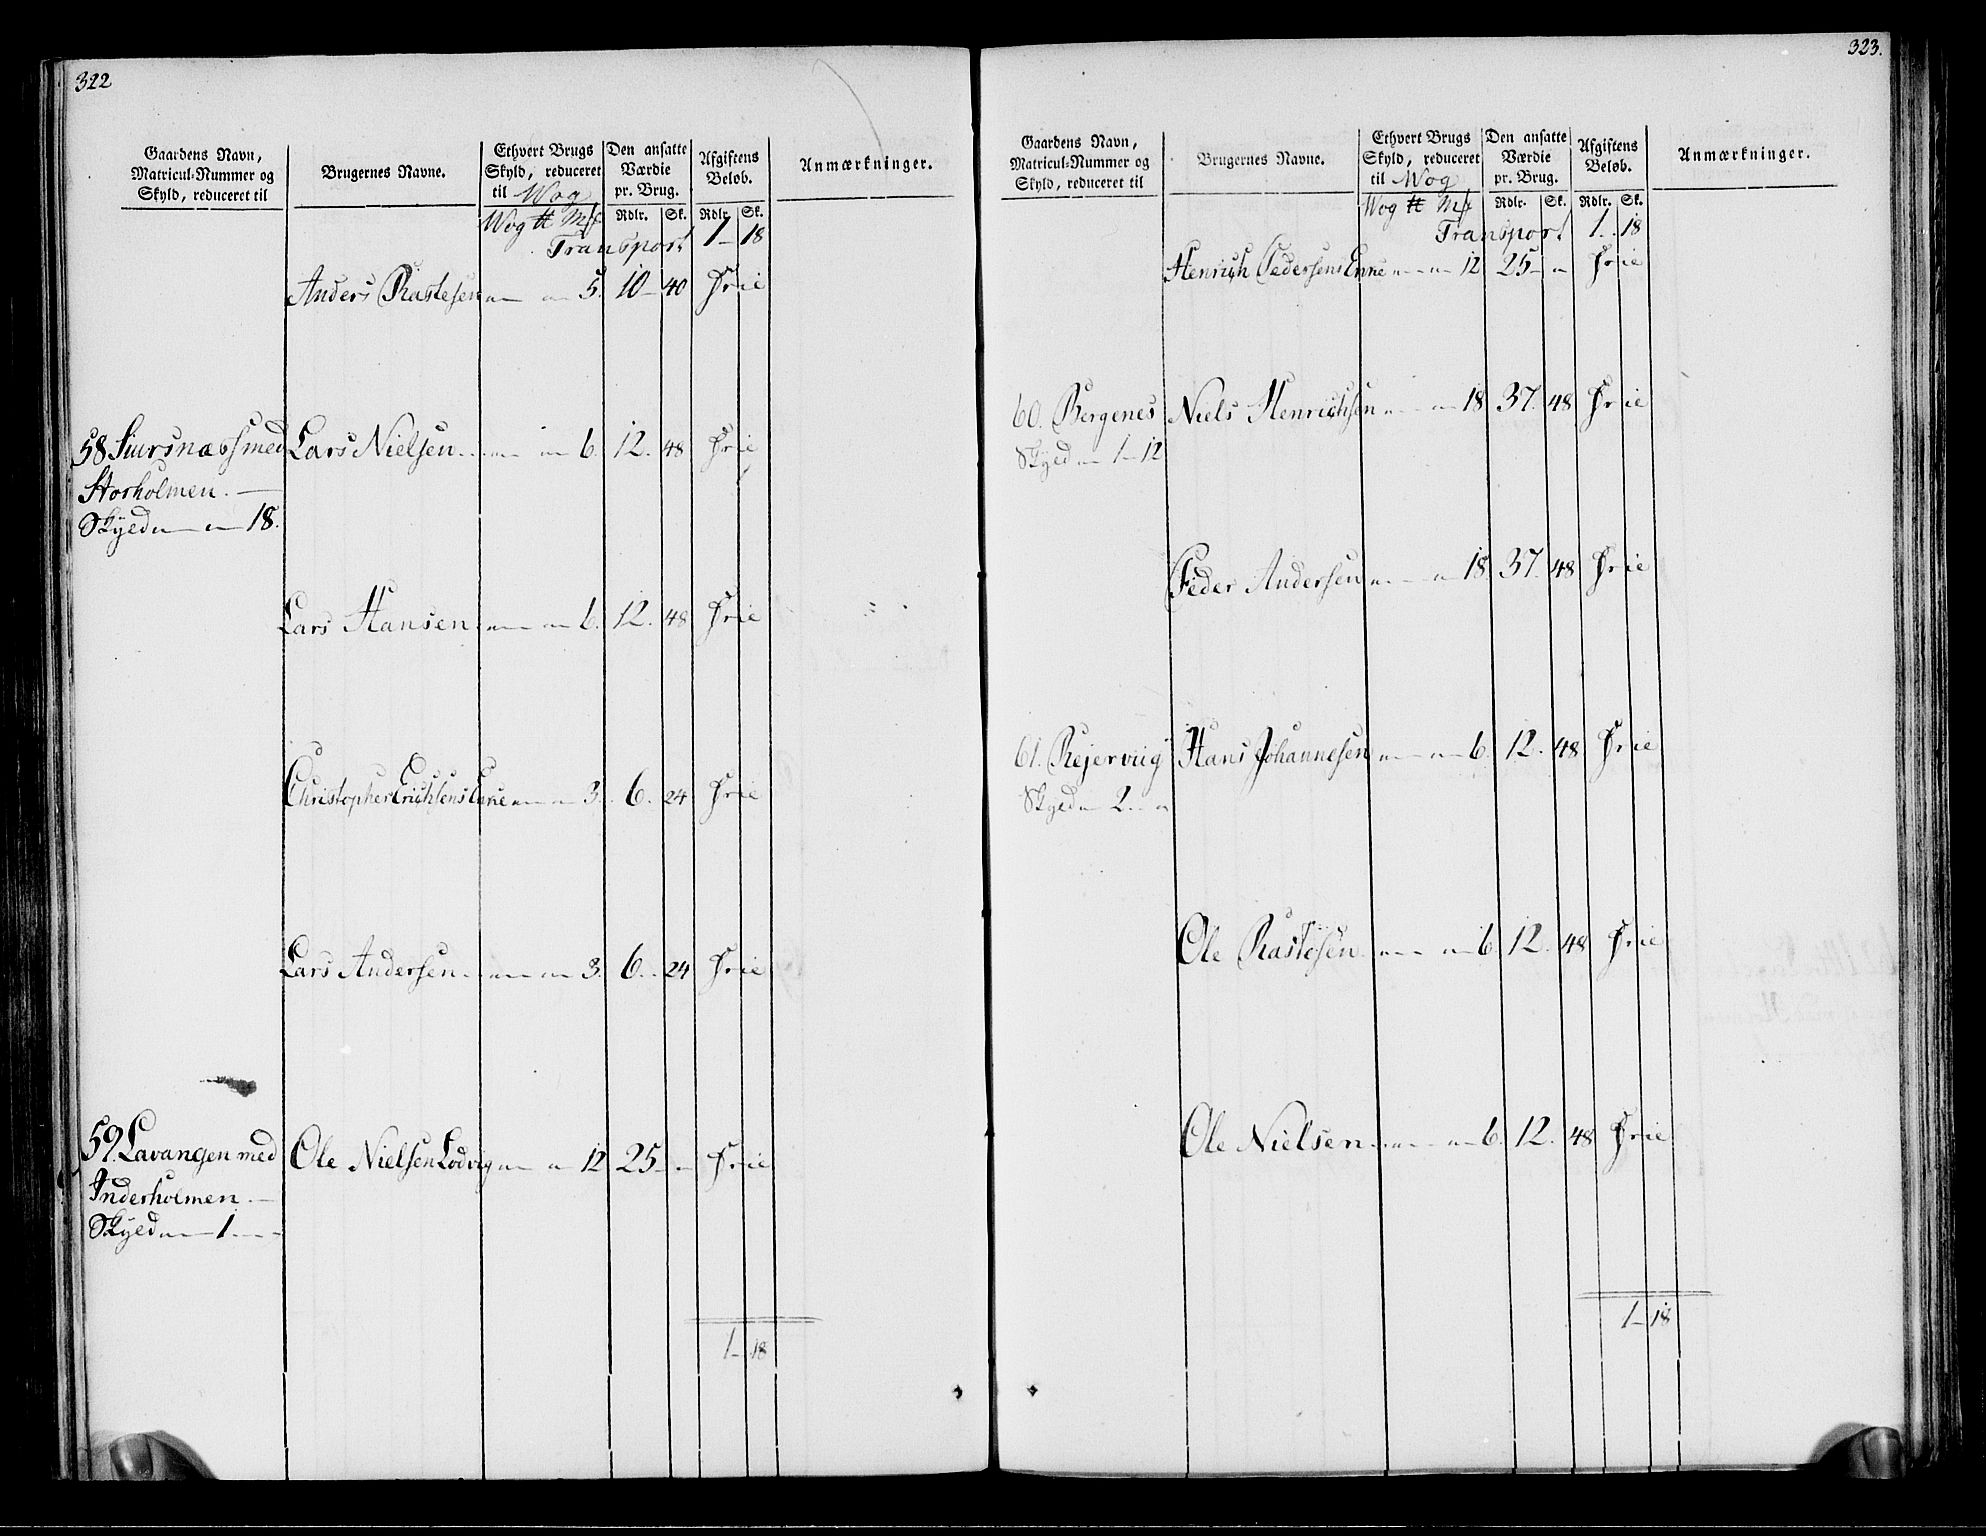 322
Gaardens Navn, Matricul-Nummer og Skyld, reduceret til
Brugernes Navne.
Ethvert Brugs Skyld, reduceret til Wog
Den ansatte Værdie pr. Brug.
Afgiftens Beløb.
Anmærkninger.
Wog ℔ Mk Rdlr. Sk. Rdlr. Sk.
Transport 1 - 18
Anders Rastesen " " 5. 10 - 40 Frie
58 Siursnæs med Lars Nielsen " " 6. 12. 48 Frie
Storholmen. —
Skyld " " 18.
Lars Hansen " " 6. 12. 48 Frie
Christopher Erichsens Enke " " 3. 6. 24 Frie
Lars Andersen " " 3. 6. 24 Frie
59. Lavangen med Ole Nielsen Lodvig " " 12 25 - " Frie
Inderholmen. —
Skyld " 1 - -
1 - 18
323.
Gaardens Navn, Matricul-Nummer og Skyld, reduceret til
Brugernes Navne.
Ethvert Brugs Skyld, reduceret til Wog
Den ansatte Værdie pr. Brug.
Afgiftens Beløb.
Anmærkninger.
Wog ℔ Mk Rdlr. Sk. Rdlr. Sk.
Transport 1. 18
Henrich Pedersens Enke " " 12 25 - " Frie
60. Bergenes Niels Henrichsen " " 18 37. 48 Frie
Skyld " 1 - 12
Peder Andersen " " 18. 37. 48 Frie
61. Rejerviig Hans Johannesen " " 6. 12. 48 Frie
Skyld " 2 - "
Ole Rastesen " " 6. 12. 48 Frie
Ole Nielsen " " 6. 12. 48 Frie
1 - 18